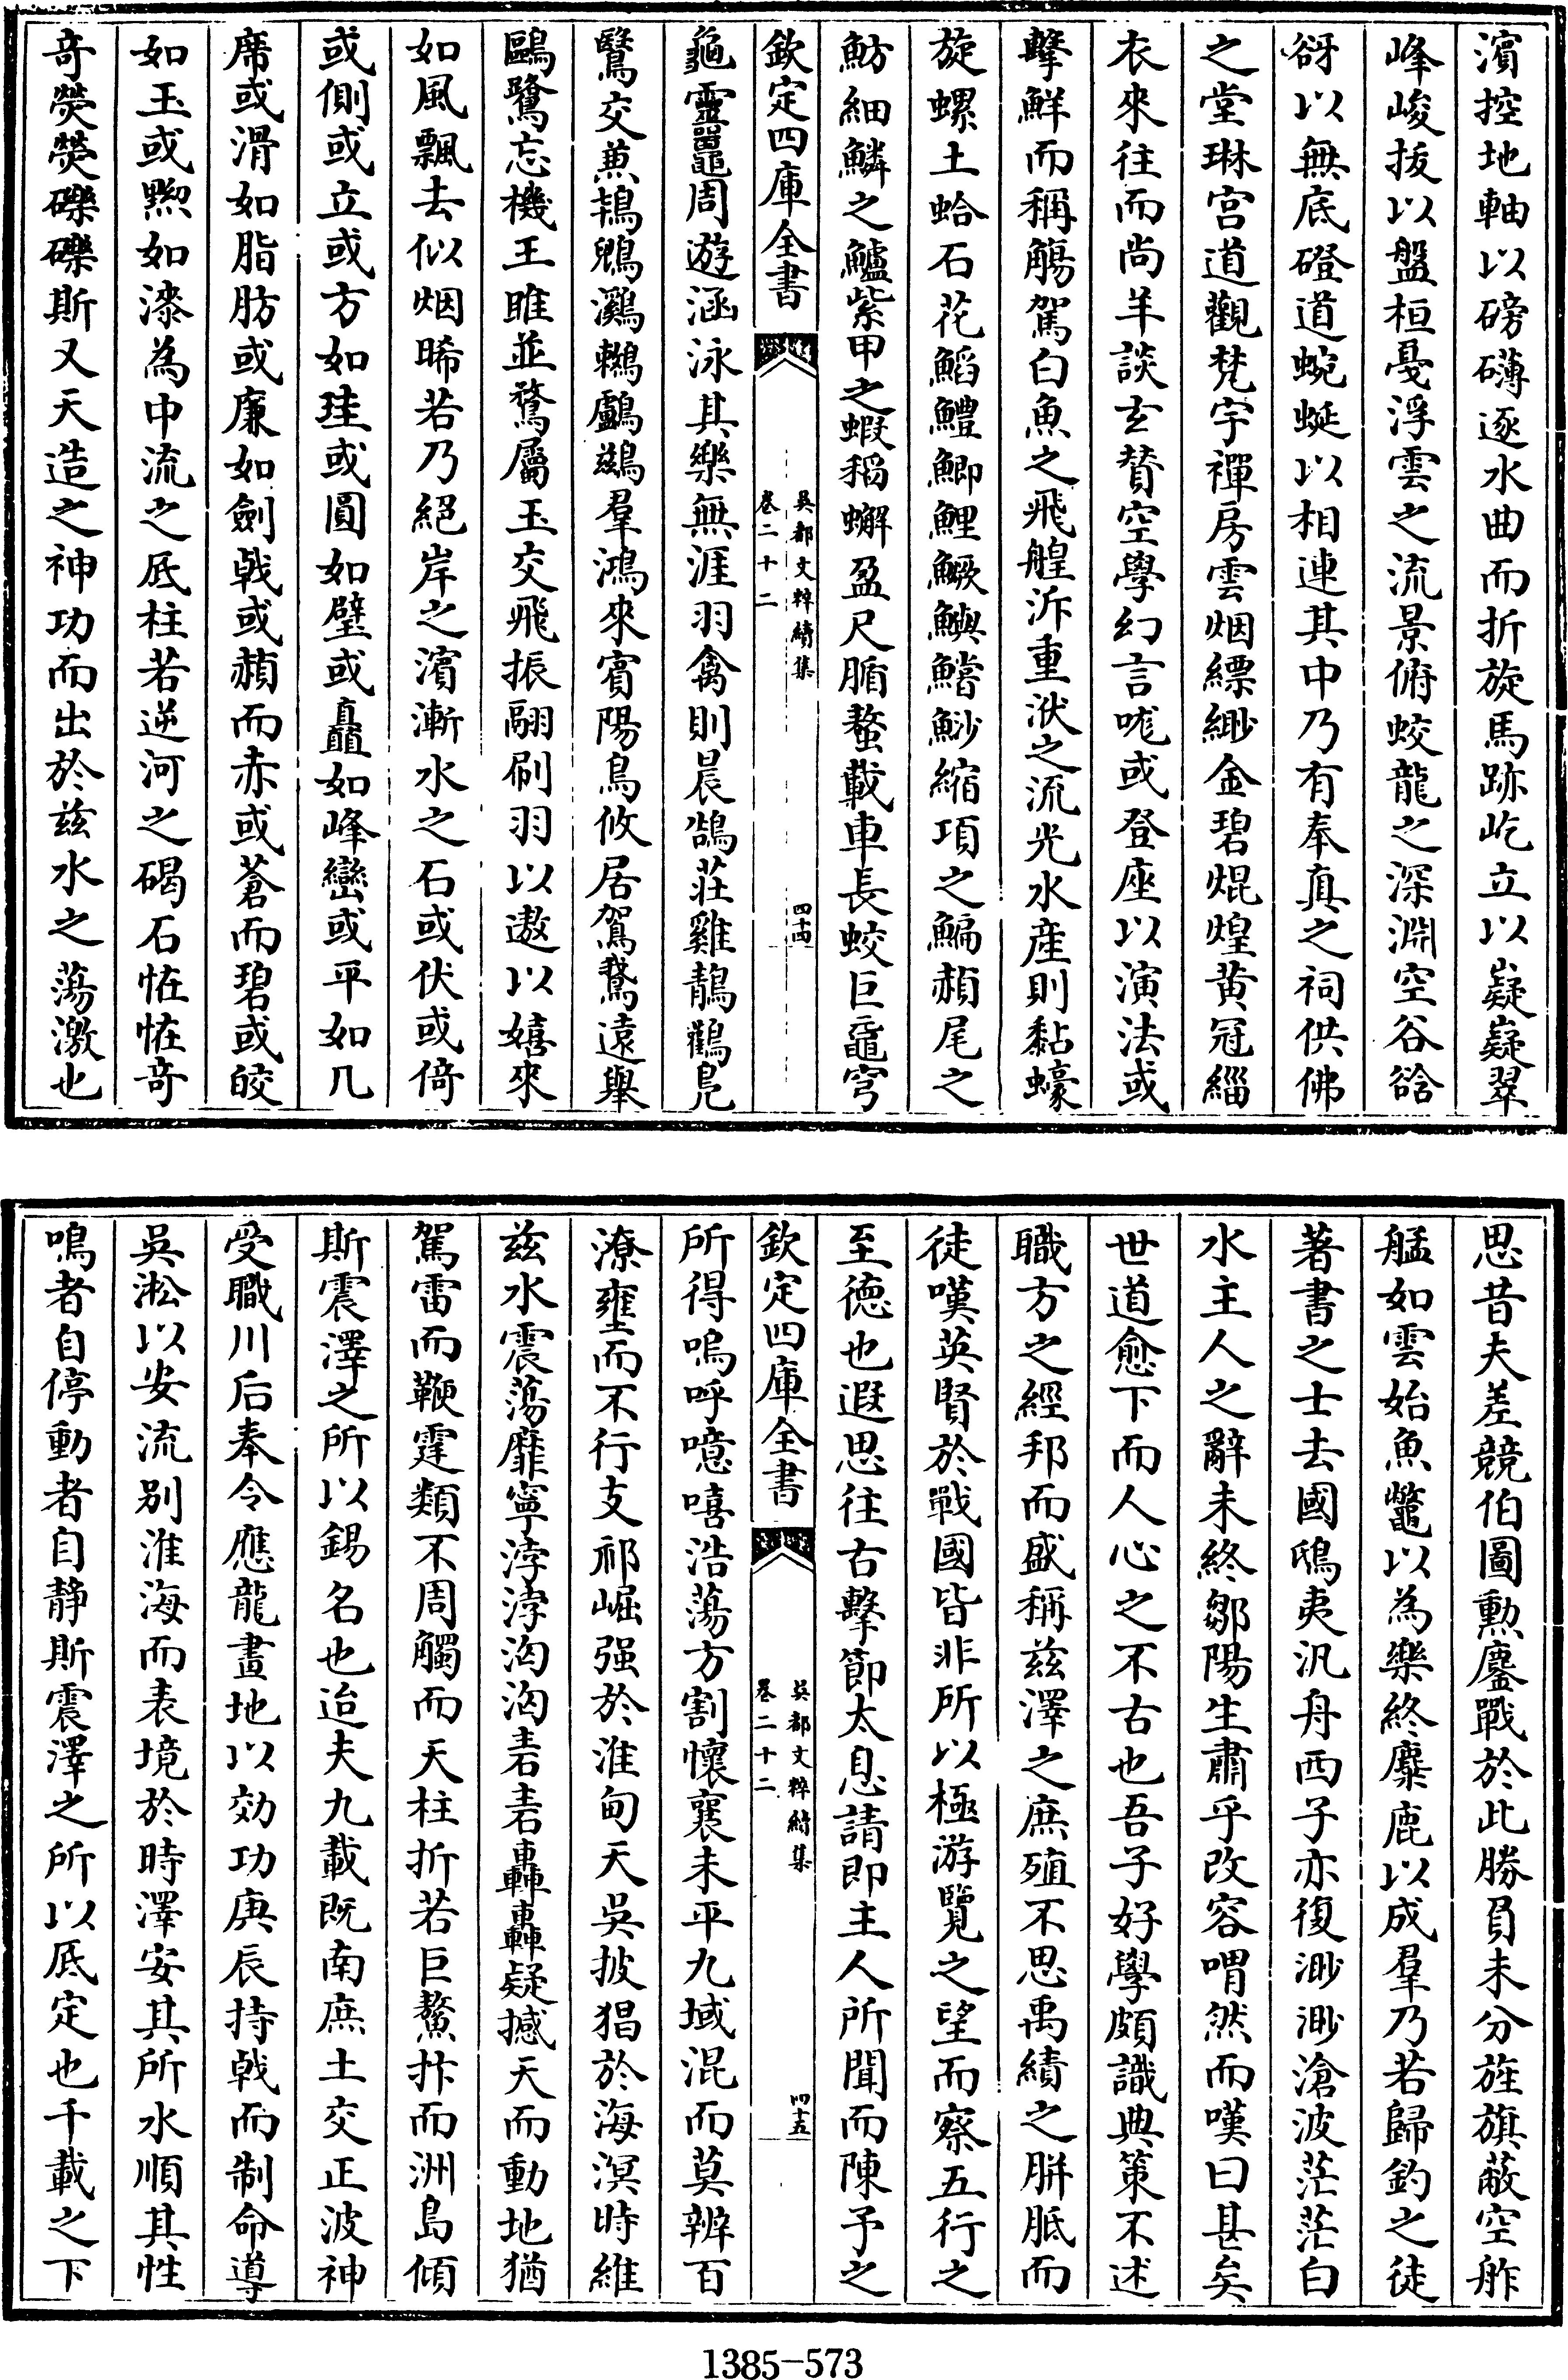 濱控地軸以磅礴逐水曲而折旋馬跡屹立以嶷嶷翠
峰峻拔以盤桓戞浮雲之流景俯蛟龍之深淵空谷谽
谺以無底磴道蜿蜒以相連其中乃有奉真之祠供佛
之堂琳宫道觀梵宇禪房雲烟縹緲金碧焜煌黄冠緇
衣來往而尚羊談玄賛空學幻言哤或登座以演法或
擊鮮而稱觴駕白魚之飛艎泝重洑之流光水産則黏蠔
旋螺土蛤石花鰌鱧鯽鯉鱖鱮鱨魦縮項之鯿頳尾之
魴細鱗之鱸紫甲之蝦稻蠏盈尺腯螯載車長蛟巨黿穹
欽定四庫全書
吳都文粹續集
卷二十二
四十四
龜靈鼉周遊涵泳其樂無涯羽禽則晨鵠莊雞鶄鸛鳧
鷖鳷交兼鵁鶂鸂鶒鸕鷀羣鴻來賓陽鳥攸居鴐鵞遠舉
鷗鷺忘機王雎並鶩屬玉交飛振翮刷羽以遨以嬉來
如風飄去似烟晞若乃絕岸之濱漸水之石或伏或倚
或側或立或方如珪或圓如璧或矗如峰巒或平如几
席或滑如脂肪或廉如劍戟或頳而赤或蒼而碧或皎
如玉或黝如漆為中流之底柱若逆河之碣石恠恠竒
竒熒熒礫礫斯又天造之神功而出於兹水之蕩激也
思昔夫差競伯圖勲鏖戰於此勝負未分旌旗蔽空舴
艋如雲始魚鼈以為樂終麋鹿以成羣乃若歸釣之徒
著書之士去國鴟夷汎舟西子亦復渺渺滄波茫茫白
水主人之辭未終鄒陽生肅乎改容喟然而嘆曰甚矣
世道愈下而人心之不古也吾子好學頗識典策不述
職方之經邦而盛稱兹澤之庶殖不思禹績之胼胝而
徒嘆英賢於戰國皆非所以極游覽之望而察五行之
至德也遐思往古擊節太息請即主人所聞而陳予之
欽定四庫全書
吳都文粹續集
卷二十二
四十五
所得嗚呼噫嘻浩蕩方割懷襄未平九域混而莫辨百
潦壅而不行支祁崛强於淮甸天吳披猖於海溟時維
兹水震蕩靡寧浡浡汹汹砉砉轟轟疑撼天而動地猶
駕雷而鞭霆類不周觸而天柱折若巨鰲抃而洲島傾
斯震澤之所以錫名也迨夫九載既南庶土交正波神
受職川后奉令應龍畫地以効功庚辰持戟而制命導
吳淞以安流别淮海而表境於時澤安其所水順其性
鳴者自停動者自静斯震澤之所以底定也千載之下
1385-573